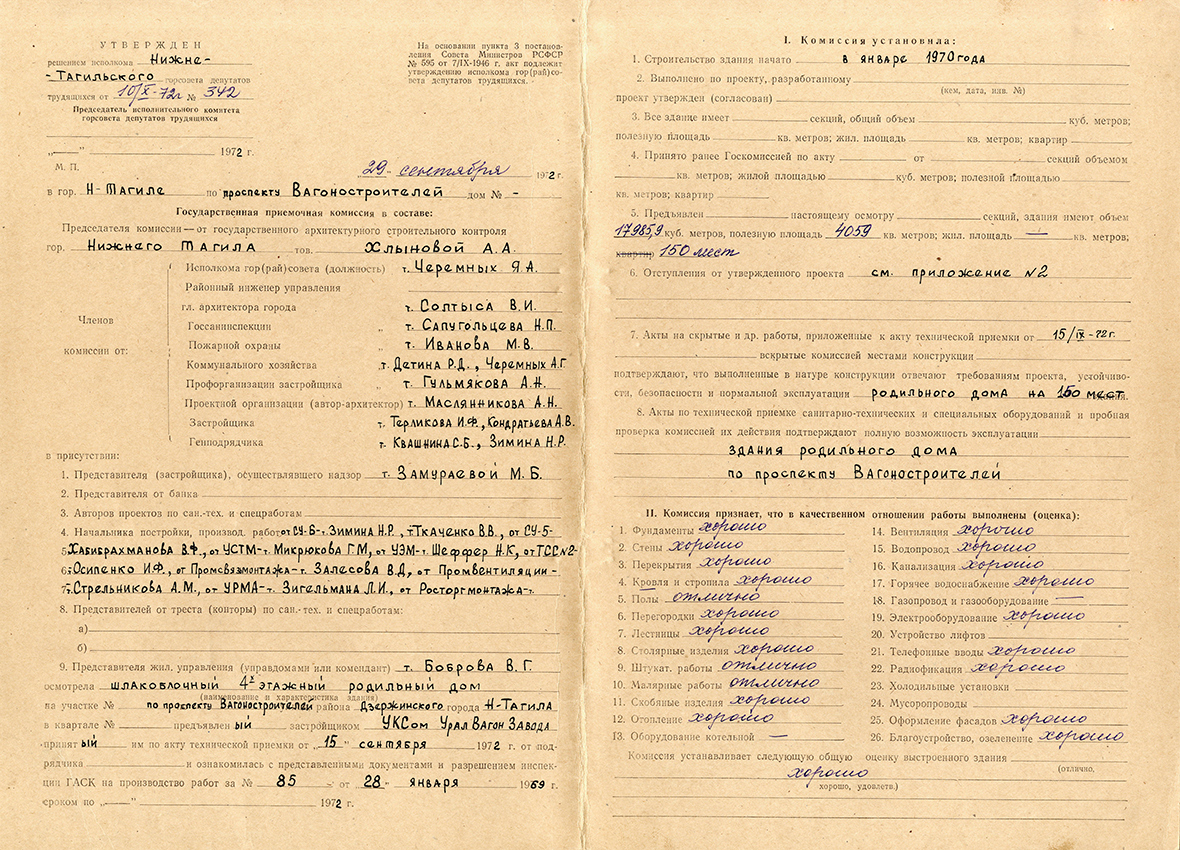 УТВЕРЖДЕН
решением исполкома Нижне-
-Тагильского горсовета депутатов
трудящихся от 10/X-72г № 342
Председатель исполнительного комитета
горсовета депутатов трудящихся
„——" 1972 г.
М. П.
На основании пункта 3 постанов-
ления Совета Министров РСФСР
№ 595 от 7/IX-1946 г. акт подлежит
утверждению исполкома гор(рай)со-
вета депутатов трудящихся.
29 сентября 1972 г.
в гор. Н-Тагиле по проспекту Вагоностроителей дом № -
Государственная приемочная комиссия в составе:
Председателя комиссии—от государственного архитектурного строительного контроля
гор. Нижнего Тагила тов. Хлыновой А.А.
Членов
комиссии от:
Исполкома гор(рай)совета (должность) т. Черемных Я.А.
Районный инженер управления
гл. архитектора города т. Солтыса В.И.
Госсанинспекции „ т. Сапугольцева Н.П.
Пожарной охраны „ т. Иванова М.В.
Коммунального хозяйства „ т. Детина Р.Д., Черемных А.Г
Профорганизации застройщика „ т. Гульмякова А.Н.
Проектной организации (автор-архитектор) т. Маслянникова А.Н.
Застройщика т. Терликова И.Ф., Кондратьева А.В.
Генподрядчика т. Квашнина С.Б., Зимина Н.Р.
в присутствии:
1. Представителя (застройщика), осуществлявшего надзор т. Замураевой М.Б.
2. Представителя от банка
3. Авторов проектов по сан.-тех. и спецработам
4. Начальника постройки, производ. работ от СУ-6-т. Зимина Н.Р., т. Ткаченко В.В., от СУ-5-
5. Хабибрахманова В.Ф., от УСТМ-т. Микрюкова Г.М, от УЭМ-т. Шеффер Н.К, от ТСС №2-
6. Осипенко И.Ф., от Промсвязмонтажа-т. Залесова В.Д, от Промвентиляции-
7. Стрельникова А.М., от УРМА-т. Зигельмана Л.И., от Росторгмонтажа-т.
8. Представителей от треста (конторы) по сан.-тех. и спецработам:
а)
б)
9. Представителя жил. управления (управдомами или комендант) т. Боброва В.Г.
осмотрела шлакоблочный 4х этажный родильный дом
(наименование и характеристика здания)
на участке № по проспекту Вагоностроителей района Дзержинского города Н-Тагила
в квартале № предъявлен ый застройщиком УКСом Урал Вагон Завода
принят ый им по акту технической приемки от "15" сентября 1972 г. от под-
рядчика и ознакомилась с представленными документами и разрешением инспек-
ции ГАСК на производство работ за № 85 от 28 января 1969 г.
сроком по „——" 1972 г.
I. Комиссия установила:
1. Строительство здания начато в январе 1970 года
2. Выполнено по проекту, разработанному
(кем, дата, инв. №)
проект утвержден (согласован)
3. Все здание имеет секций, общий объем куб. метров;
полезную площадь кв. метров; жил. площадь кв. метров; квартир
4. Принято ранее Госкомиссией по акту от секций объемом
кв. метров; жилой площадью куб. метров; полезной площадью
кв. метров; квартир
5. Предъявлен настоящему осмотру секций, здания имеют объем
17985,9 куб. метров, полезную площадь 4059 кв. метров; жил. площадь — кв. метров;
квартир 150 мест
6. Отступления от утвержденного проекта см. приложение №2
7. Акты на скрытые и др. работы, приложенные к акту технической приемки от 15/IX-72г.
вскрытые комиссией местами конструкции
подтверждают, что выполненные в натуре конструкции отвечают требованиям проекта, устойчиво-
сти, безопасности и нормальной эксплуатации родильного дома на 150 мест
8. Акты по технической приемке санитарно-технических и специальных оборудований и пробная
проверка комиссией их действия подтверждают полную возможность эксплуатации
здания родильного дома
по проспекту Вагоностроителей
II. Комиссия признает, что в качественном отношении работы выполнены (оценка):
1. Фундаменты хорошо
2. Стены хорошо
3. Перекрытия хорошо
4. Кровля и стропила хорошо
5. Полы отлично
6. Перегородки хорошо
7. Лестницы хорошо
8. Столярные изделия хорошо
9. Штукат. работы отлично
10. Малярные работы отлично
11. Скобяные изделия хорошо
12. Отопление хорошо
13. Оборудование котельной —
14. Вентиляция хорошо
15. Водопровод хорошо
16. Канализация хорошо
17. Горячее водоснабжение хорошо
18. Газопровод и газооборудование —
19. Электрооборудование хорошо
20. Устройство лифтов
21. Телефонные вводы хорошо
22. Радиофикация хорошо
23. Холодильные установки
24. Мусоропроводы
25. Оформление фасадов хорошо
26. Благоустройство, озеленение хорошо
Комиссия устанавливает следующую общую оценку выстроенного здания
(отлично,
хорошо
хорошо, удовлетв.)